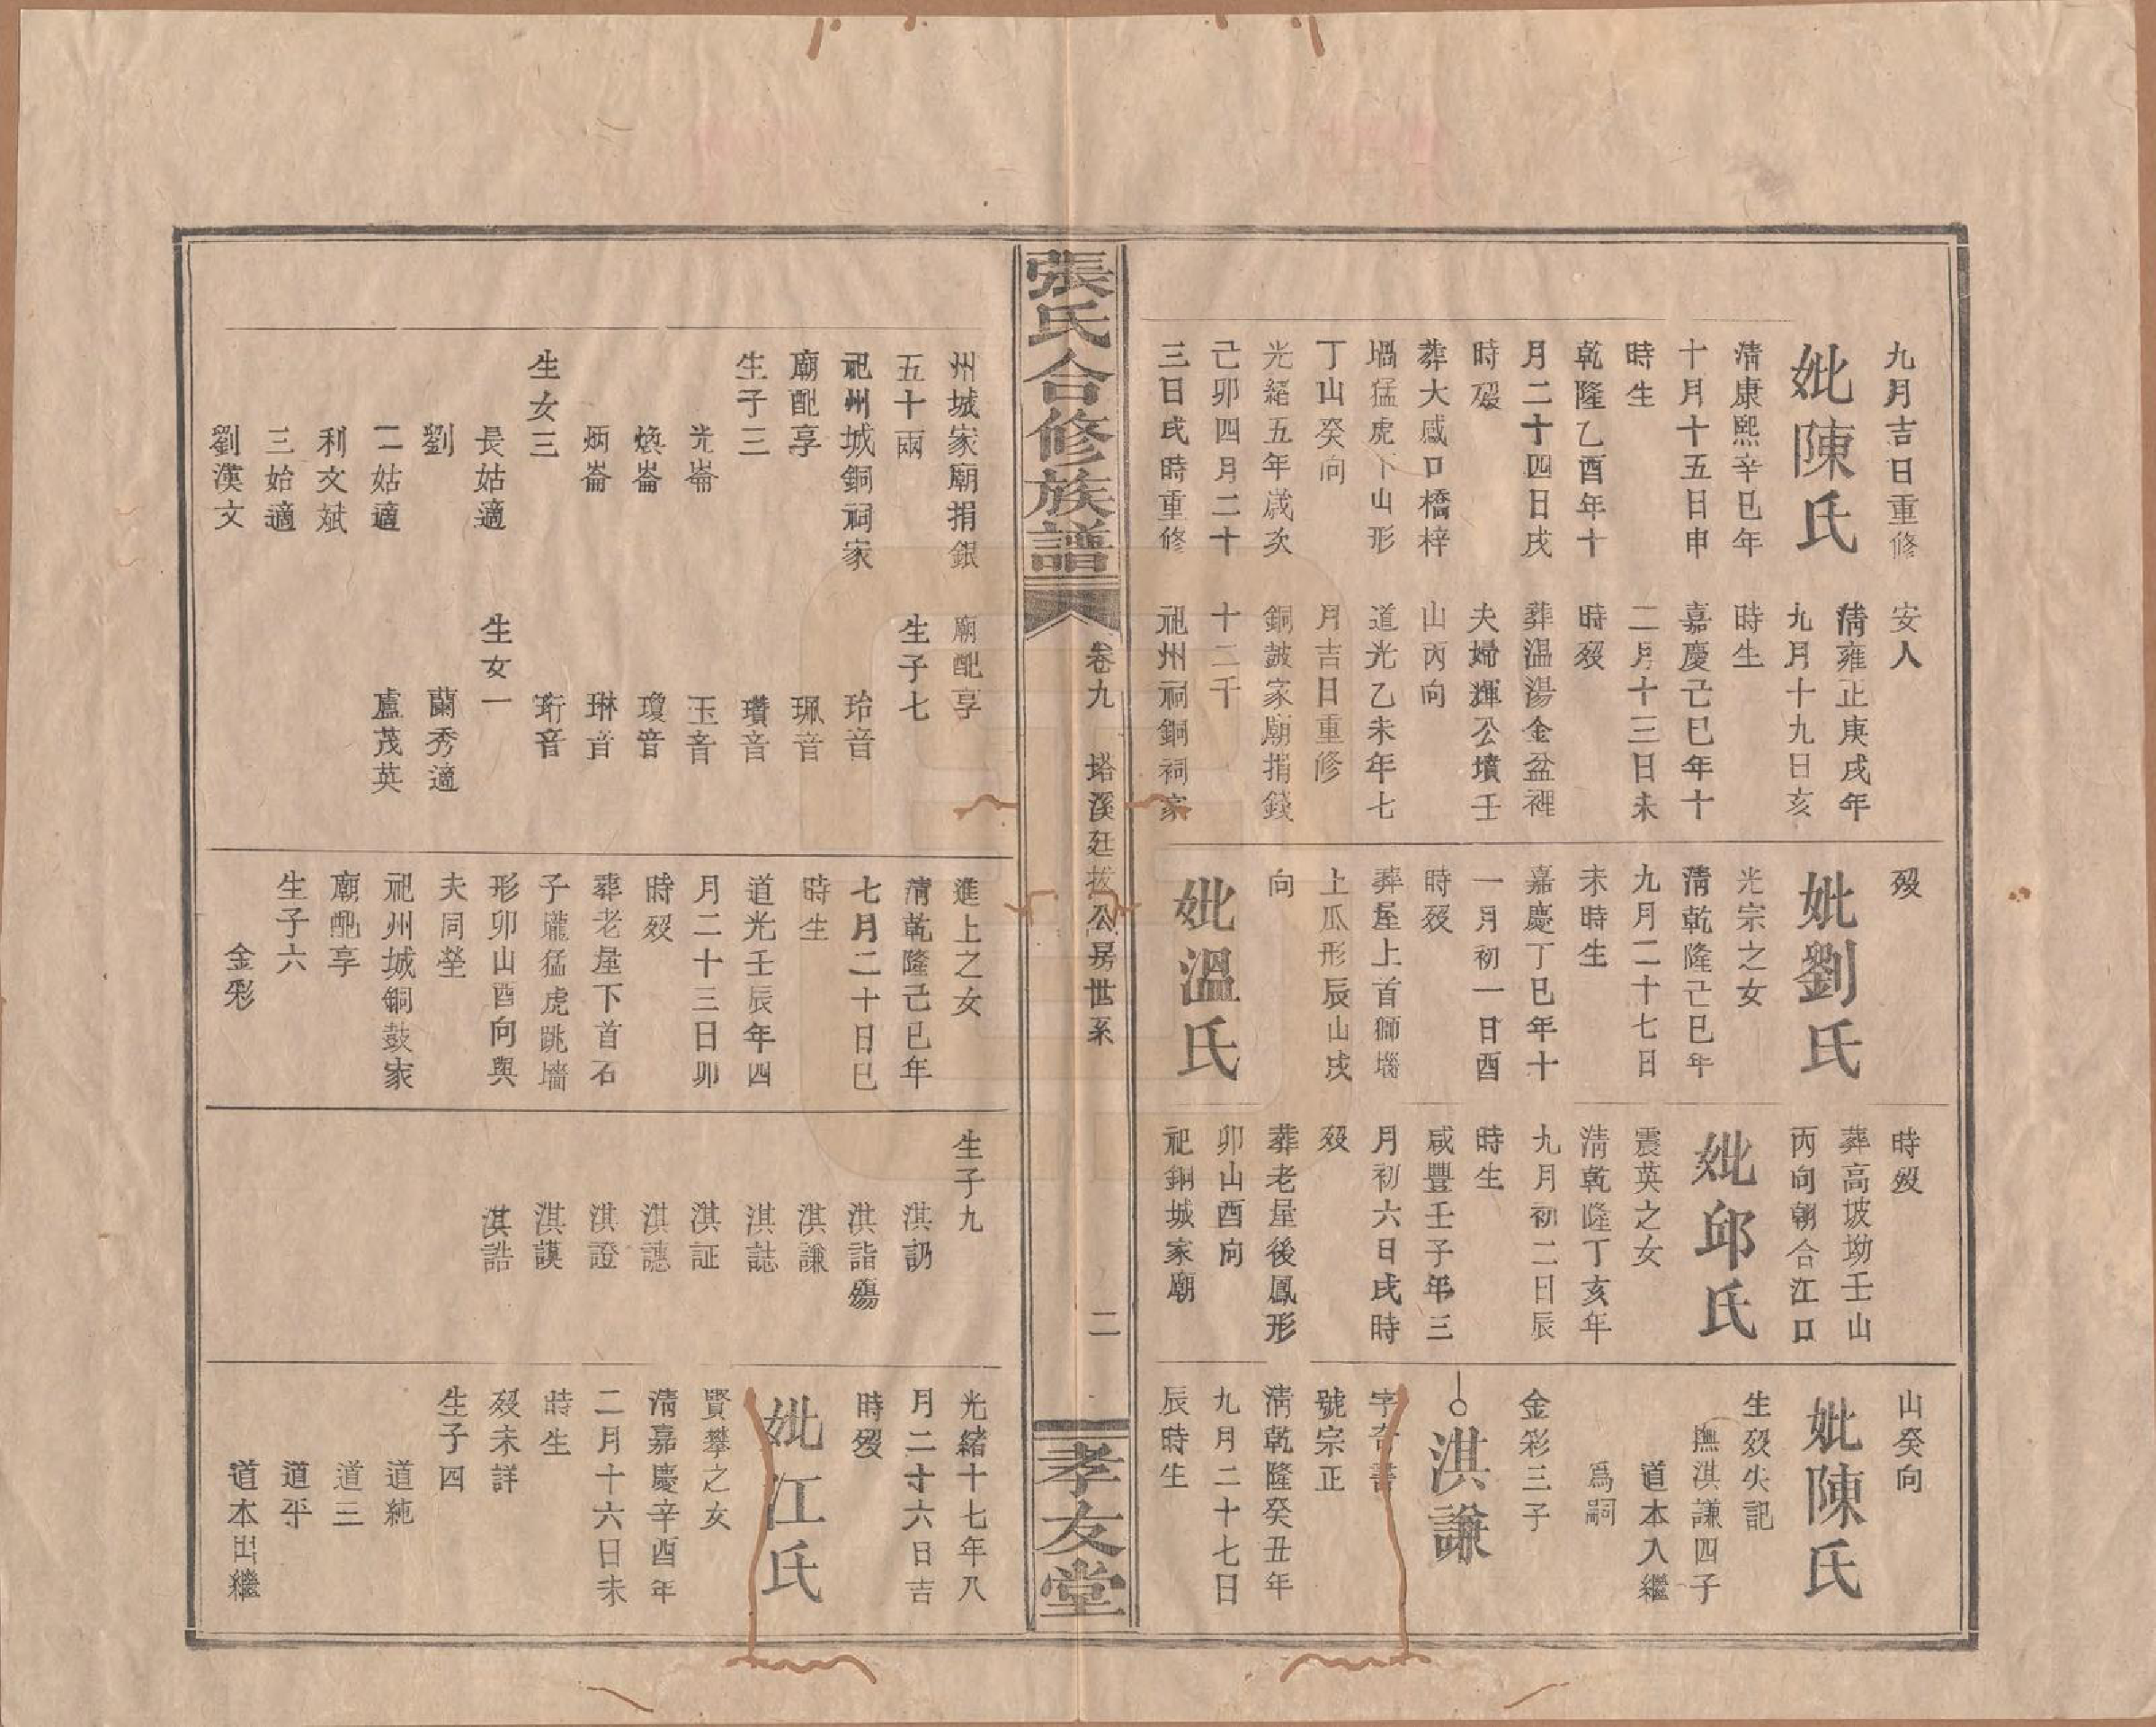 九月吉日重修
妣陳氏
清康熙辛巳年
十月十五日申
時生
乾隆乙酉年十
月二十四日戌
時歿
葬大慼口橋梓
堨猛虎下山形
丁山癸向
光緒五年歲次
己卯四月二十
三日戌時重修
安人
清雍正庚戌年
九月十九日亥
時生
嘉慶己巳年十
二月十三日未
時歿
葬溫湯金盆裡
夫婦輝公墳壬
山丙向
道光乙未年七
月吉日重修
銅鼓家廟捐錢
十二千
祀州祠銅祠家
歿
妣劉氏
光宗之女
清乾隆己巳年
九月二十七日
未時生
嘉慶丁巳年十
一月初一日酉
時歿
葬屋上首獅堖
上瓜形辰山戌
向
妣溫氏
時歿
葬高坡坳壬山
丙向朝合江口
妣邱氏
震英之女
清乾隆丁亥年
九月初二日辰
時生
咸豐壬子年三
月初六日戌時
歿
葬老屋後鳳形
卯山酉向
祀銅城家廟
山癸向
妣陳氏
生歿失記
撫淇謙四子
道本入繼
爲嗣
金彩三子
淇謙
字杏書
號宗正
清乾隆癸丑年
九月二十七日
辰時生
張氏合修族譜
卷九 塔溪廷拔公房世系
二
孝友堂
州城家廟捐銀
五十兩
祀州城銅祠家
廟配享
生子三
光崙
煥崙
炳崙
生女三
長姑適
劉
二姑適
利文斌
三姑適
劉漢文
廟配享
生子七
玿音
珮音
瓚音
玉音
瓊音
琳音
珩音
生女一
蘭秀適
盧茂英
進上之女
清乾隆己巳年
七月二十日巳
時生
道光壬辰年四
月二十三日卯
時歿
葬老屋下首石
子壠猛虎跳墻
形卯山酉向與
夫同塋
祀州城銅鼓家
廟配享
生子六
金彩
生子九
淇訒
淇詣殤
淇謙
淇誌
淇証
淇譓
淇證
淇謨
淇誥
光緒十七年八
月二十六日吉
時歿
妣江氏
賢攀之女
清嘉慶辛酉年
二月十六日未
時生
歿未詳
生子四
道純
道三
道平
道本出繼